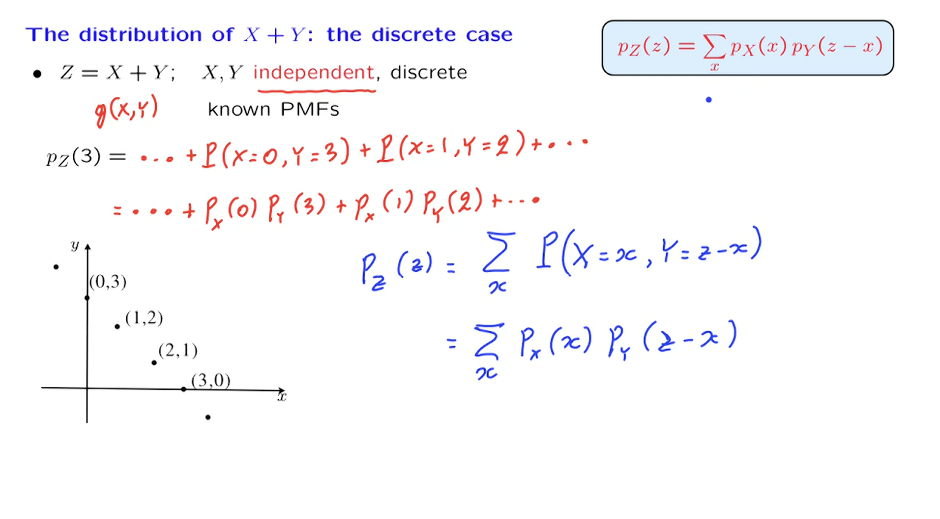 The distribution of X + Y: the discrete case
p_Z(z) = ∑_x p_X(x) p_Y(z − x)
• Z = X + Y; X, Y independent, discrete
g(X,Y) known PMFs
p_Z(3) = ... + P(X=0, Y=3) + P(X=1, Y=2) + ...
= ... + P_X(0) P_Y(3) + P_X(1) P_Y(2) + ...
P_Z(z) = ∑_x P(X=x, Y=z−x)
= ∑_x P_X(x) P_Y(z−x)
y
(0,3)
(1,2)
(2,1)
(3,0)
x